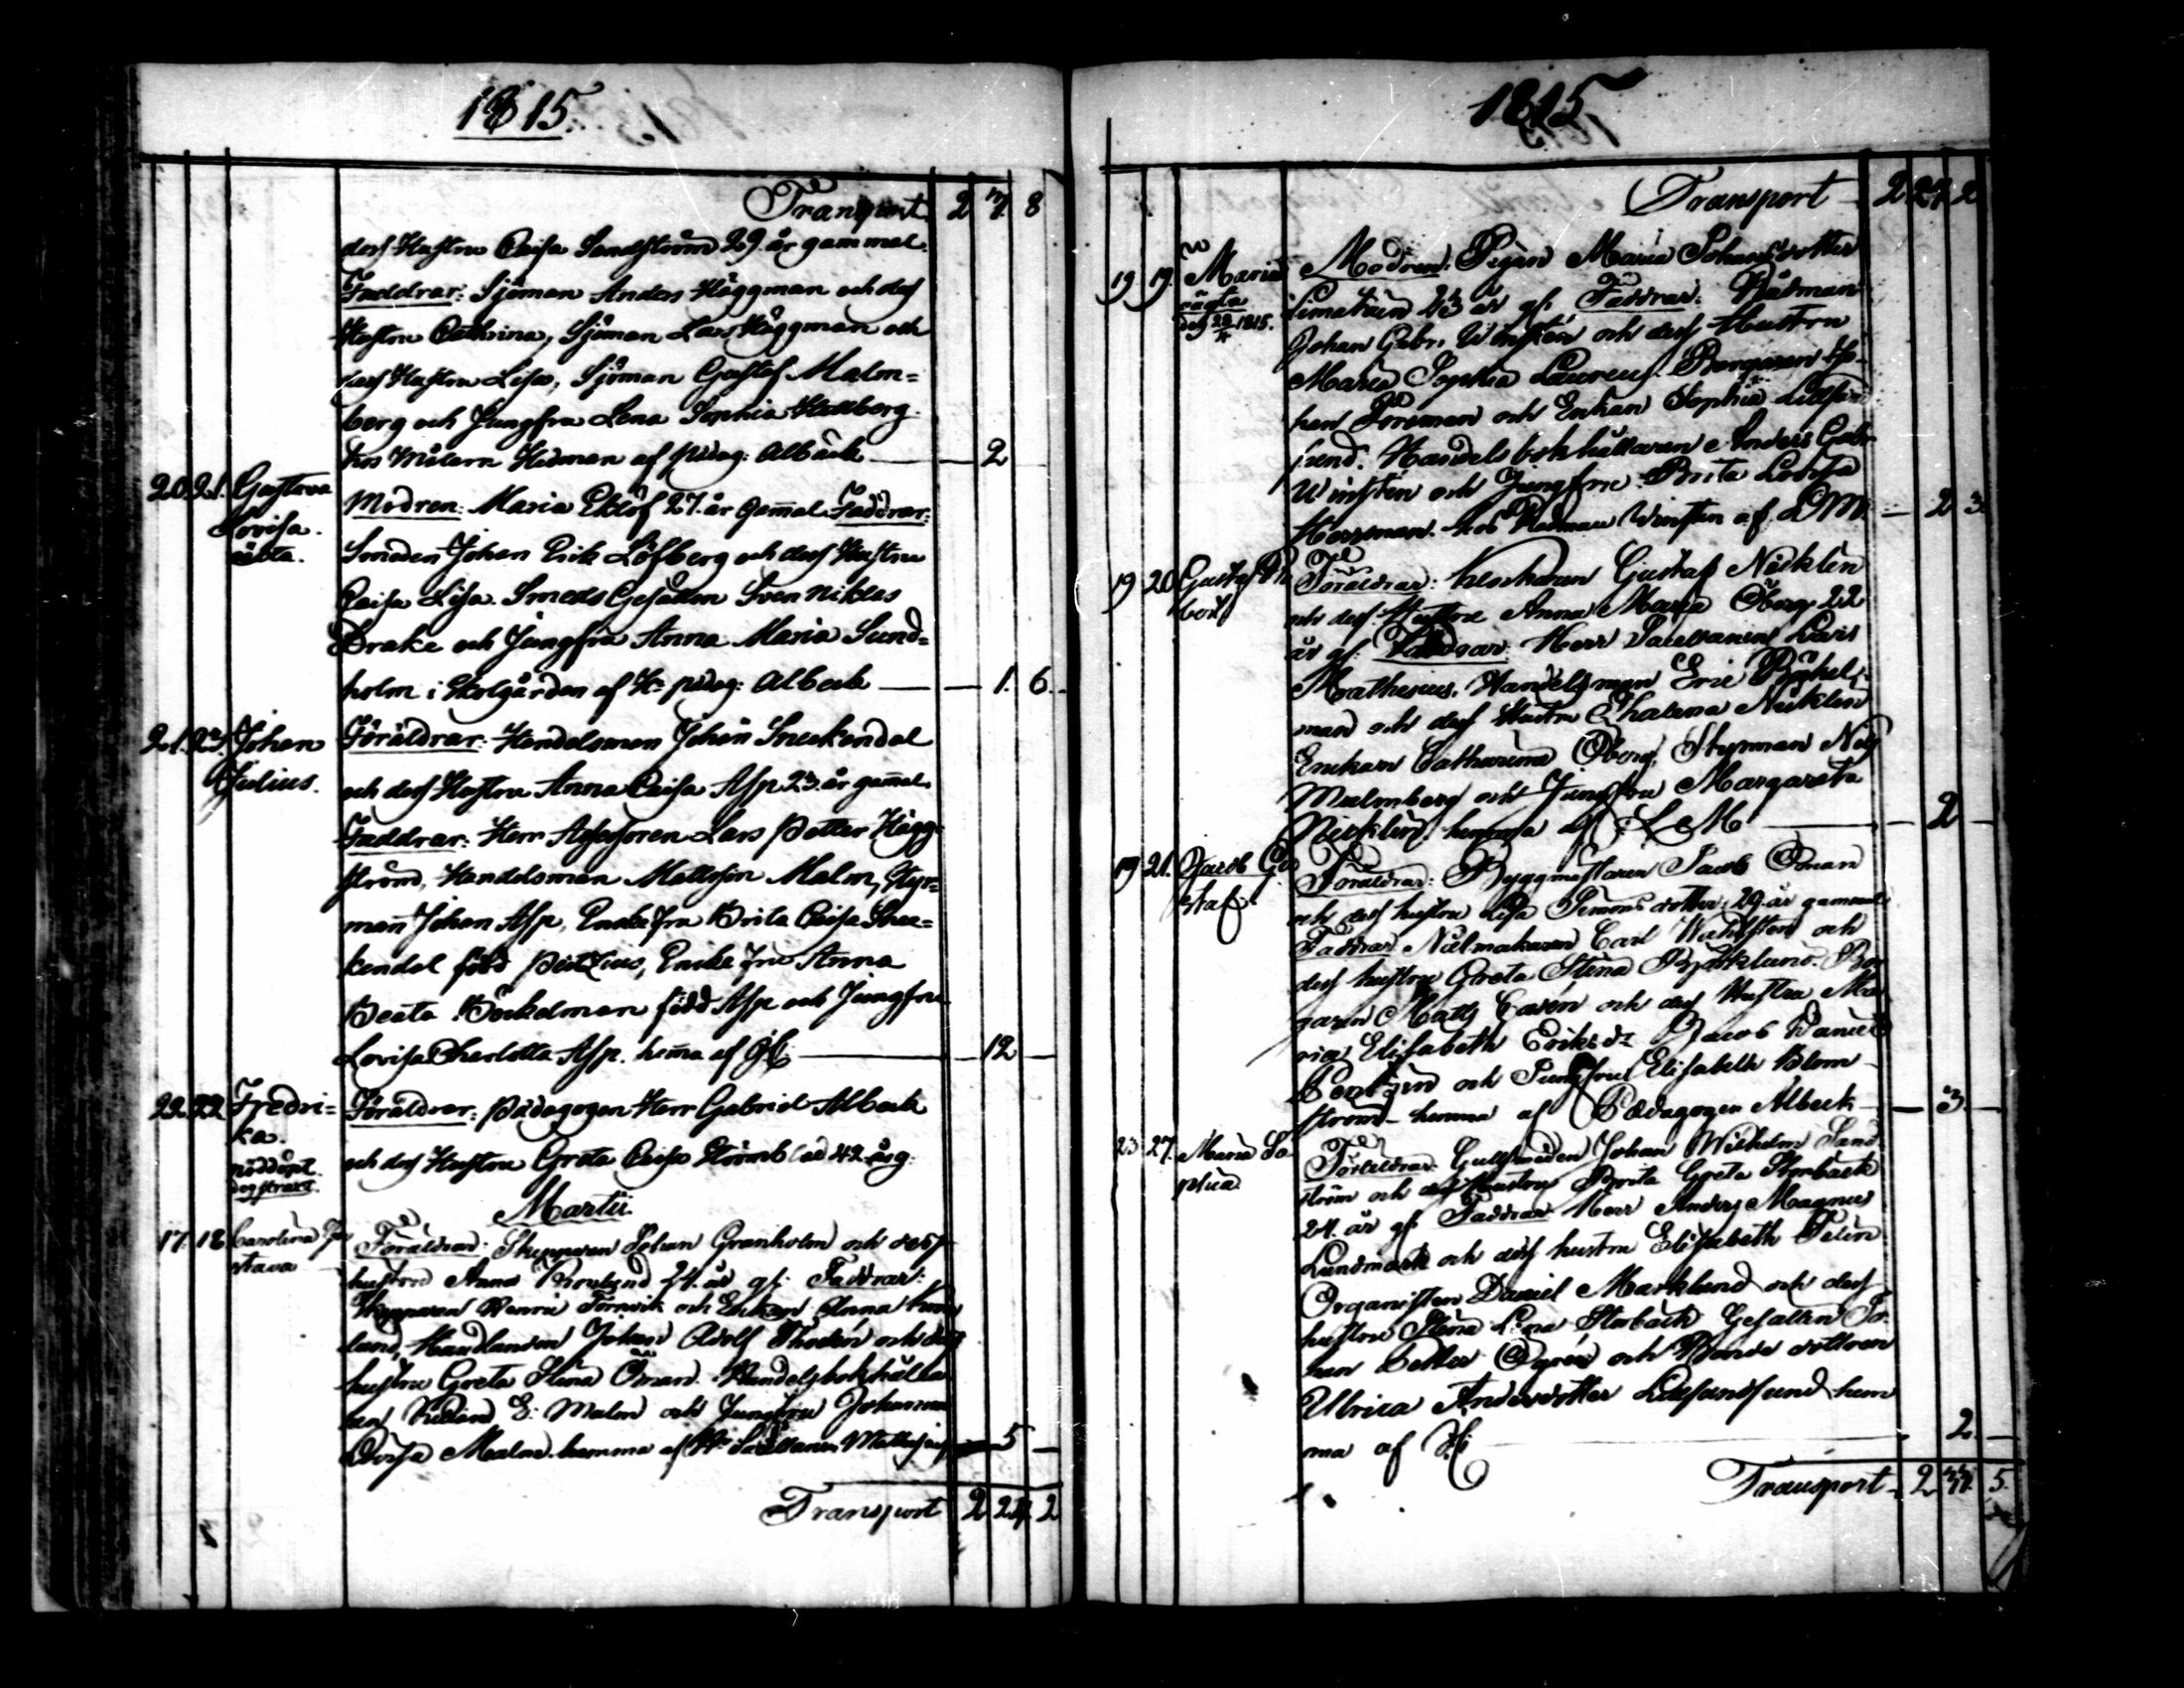 1815.
Transport 2 7. 8
dess Hustru Caisa Sandström 29. år gammal.
Faddrar: Sjöman Anders Häggman och dess
Hustru Cathrina, Sjöman Lars Häggman och
dess Hustru Lisa, Sjöman Gustaf Malm=
berg och Jungfru Lena Sophia Hallberg
hos Målarn Hedman af pädag: Albäck — 2
20. 21. Gustava Modren: Maria Eklöf 27. år gamal. Faddrar:
Lovisa. Smeden Johan Erik Löfberg och dess Hustru
äkta. Caisa Lisa. Smeds Gesällen Sven Niklas
Brake och Jungfru Anna Maria Sund=
holm i Skolgården af Hr pädag: Albeck — 1. 6.
21. 23. Johan Föräldrar: Handelsman Johan Sneckendal
Julius. och dess Hustru Anna Caisa Asp 23. år gamal.
Faddrar: Herr Assessoren Lars Petter Hägg=
ström, Handelsman Malm, Styr=
man Johan Asp, Enke fru Brita Caisa Snec=
kendal född Enke fru Anna
Beata Böckelman född Asp och Jungfru
Lovisa Charlotta Asp. hema af — 12 —
22. 22 Fredri= Föräldrar: Pädagogen Herr Gabriel Albeck
ka. och dess Hustru Greta Caisa 42 år g:
nöddöpt
dog strax.
Martii.
17. 18 Carolina Gu Föräldrar: Skepparen Johan Granholm och dess
stava hustru Anna 24. år gl: Faddrar:
Skepparen Henric Törnvik och Enkan Anna
lund, Handlanden Johan Adolf Thodén och dess
hustru Greta Stina Öman. Handelsbokhålla
ren E: Malm och Jungfru Johanna
Lovisa Malm. hemma af Hr Sacellanen — 5 —
Transport 2 27. 2
1815
Transport 2. 27. 2
19 19. Maria Modren: Pigan Maria Johansdotter
oägta 23 år gl: Faddrar: Rådman
Johan Gabr. Winstén och dess Hustru
Maria Sophia Laurens. Borgaren Jo-
han Foreman och Enkan Sophia
sund. Handelsbokhållaren Anders Gabr
Winstén och Jungfru Brita Lovisa
Herrman. hos Rådman Winstén af — 2 3
19 20. Gustaf Föräldrar: Klockaren Gustaf Nicklén
och dess Hustru Anna Maria Öberg 22
år gl: Faddrar: Herr Sacellanen Lars
Mathesius. Handelsman Eric Böckel-
man och dess Hustru Nicklén
Enckan Catharina Öberg, Styrman Nils
Malmberg och Jungfru Margareta
Nicklén. hemma af L: M — 2 —
19 21. Jacob Gu Föräldrar: Byggmästaren Jacob Öman
staf. och dess hustru Lisa Simonsdotter 29. år gammal.
Faddrar Nålmakaren Carl Wahlsten och
dess hustru Greta Stina Björklund. Bor
garen Mats Cavén och dess Hustru Ma
ria Elisabeth Eriksdr Jacob Daniel
och Jungfru Elisabeth Blom-
ström - hemma af Pædagogen Albeck — 3. —
23 27. Maria So Föräldrar: Guldsmeden Johan Wilhelm Sand
phia ström och dess hustru Brita Greta Storbäck
24. år gl: Faddrar Herr Anders Magnus
Lundmark och dess hustru Elisabeth
Organisten Daniel Marklund och dess
hustru Stina Lena Storbäck Gesällen Jo-
han Petter Ögrén och Bonde dottren
Ulrica Andersdotter hem
ma af — 2. —
Transport 2 5.